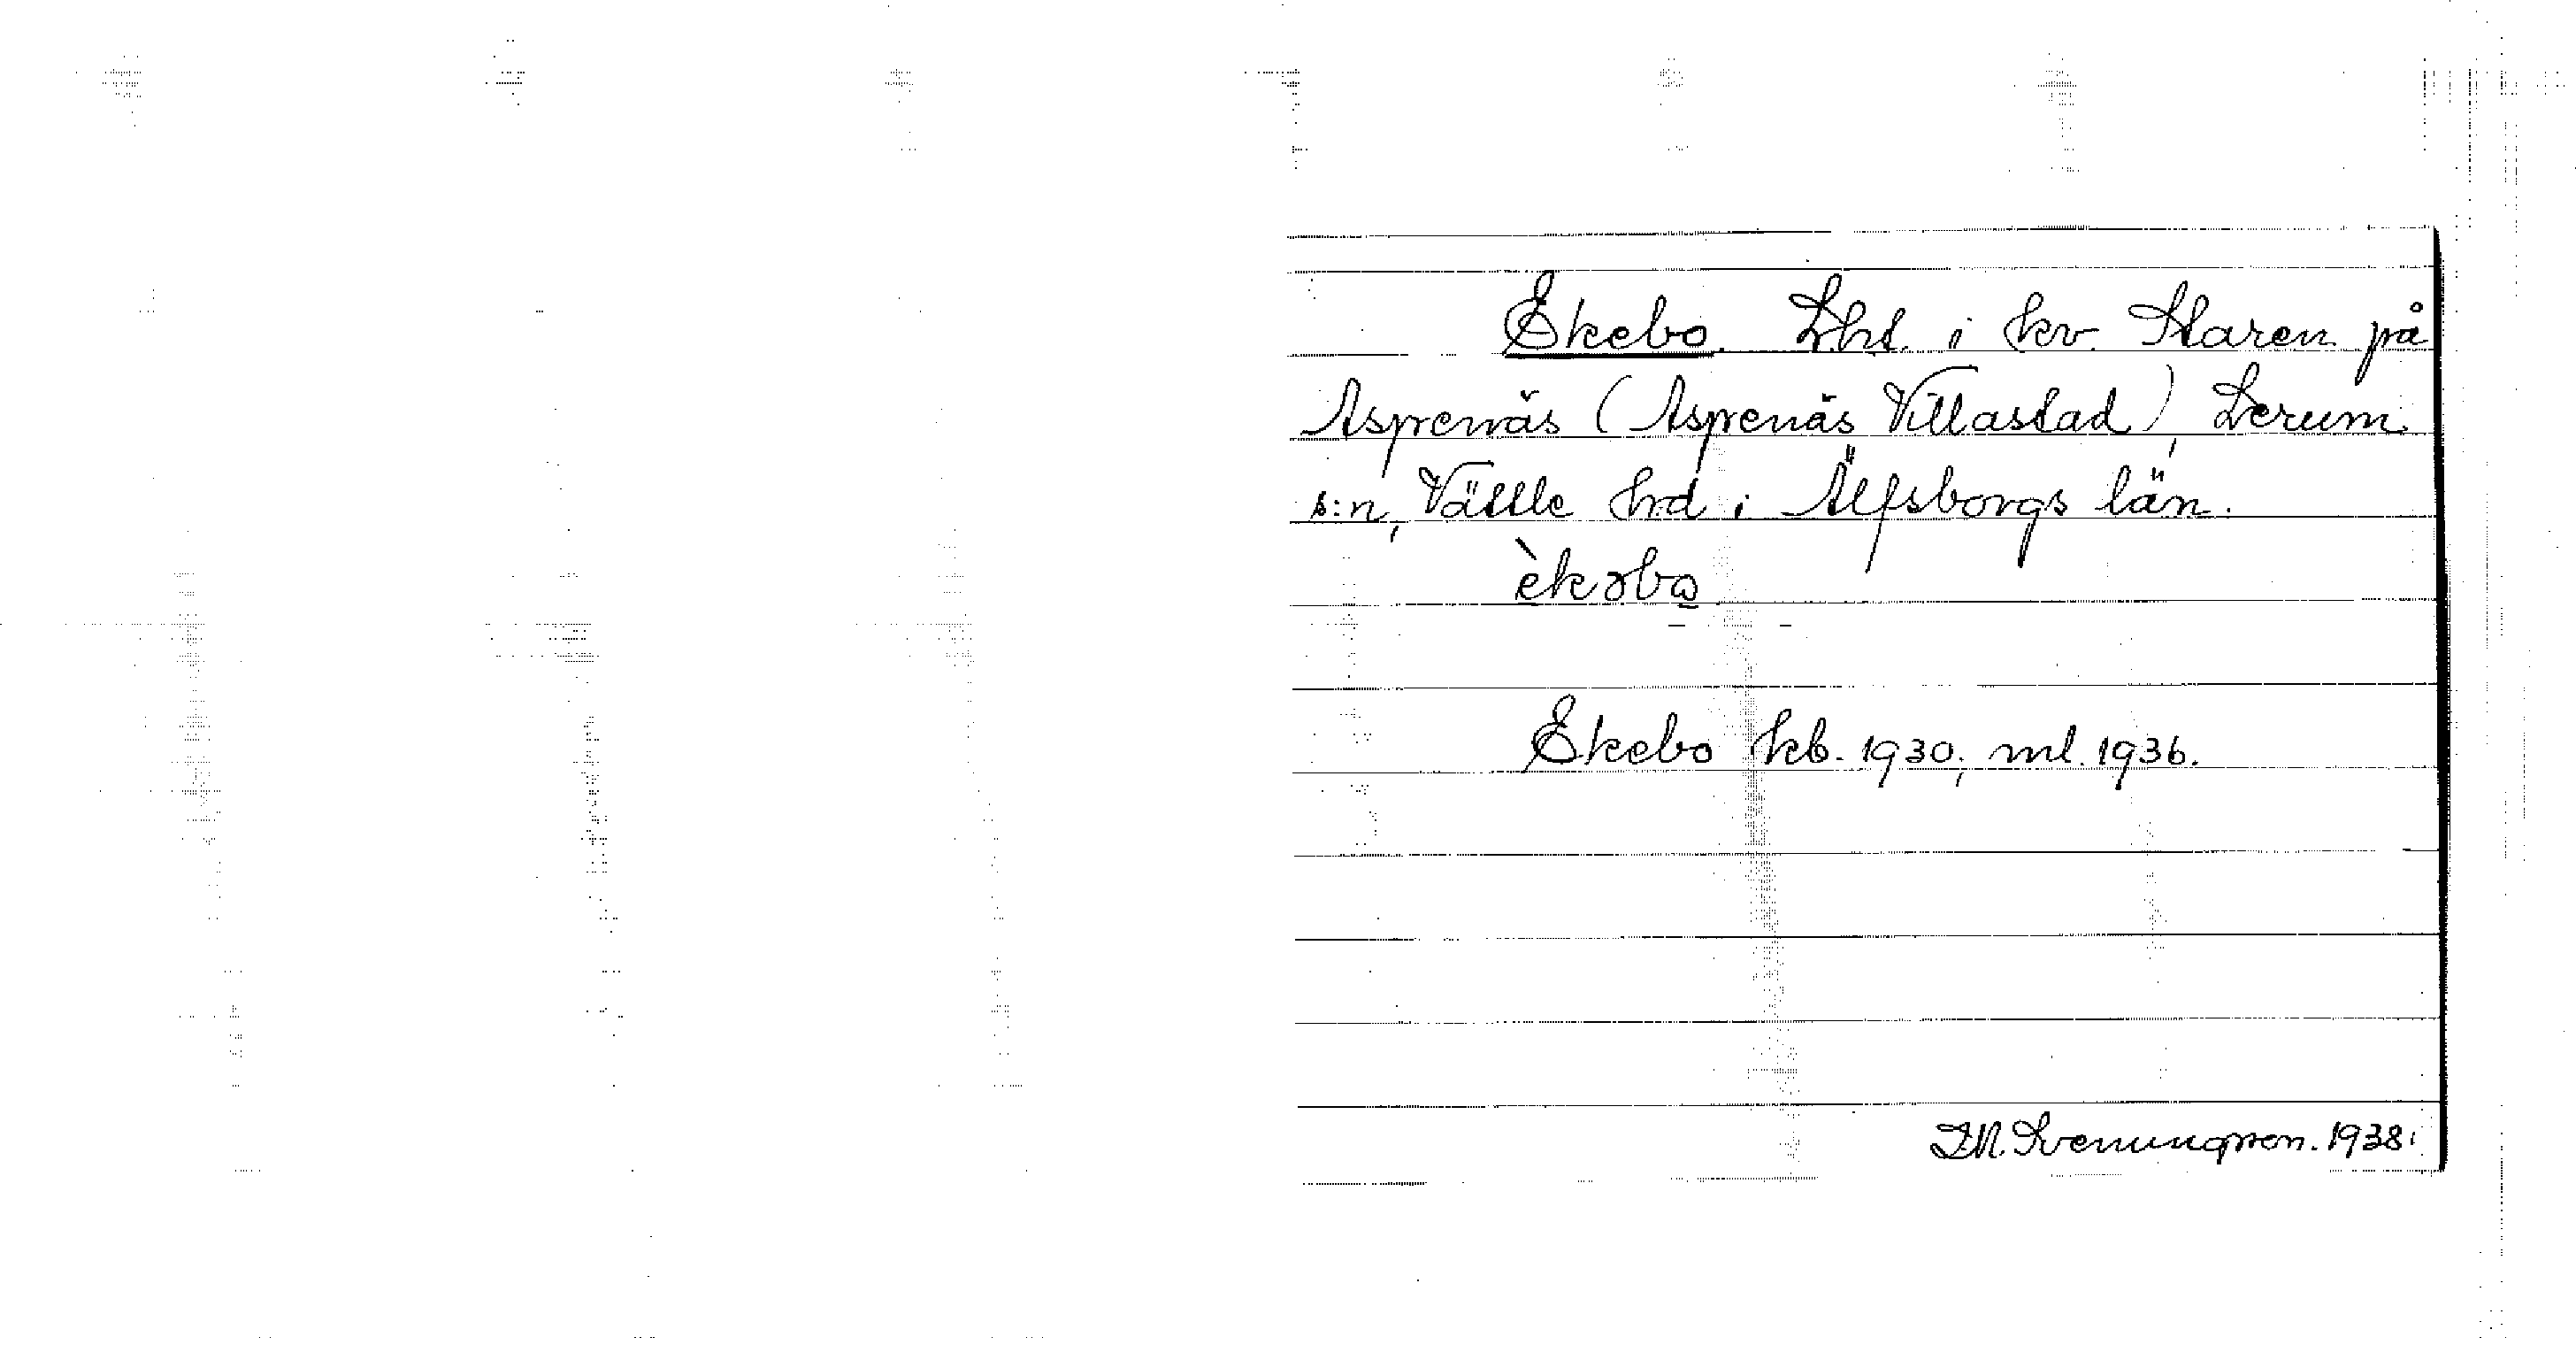 Ekebo. Lht. i kv. Staren på
Aspenäs (Aspenäs Villastad), Lerum
s:n, Vättle hd i Älfsborgs län.
èkəbo
Ekebo kb. 1930; ml. 1936.
I.M. Svenungsson. 1938.